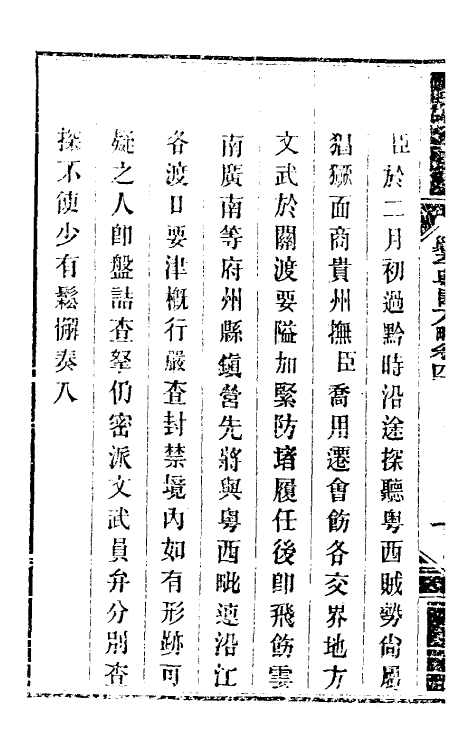 臣於二月初過黔時沿途探聽粵西賊勢尙屬
猖獗面商貴州撫臣喬用遷會飭各交界地方
文武於關渡要隘加緊防堵履任後卽飛飭雲
南廣南等府州縣鎭營先將與粵西毗連沿江
各渡口要津槪行嚴查封禁境內如有形跡可
疑之人卽盤詰查拏仍密派文武員弁分別查
探不使少有鬆懈奏入
卷四